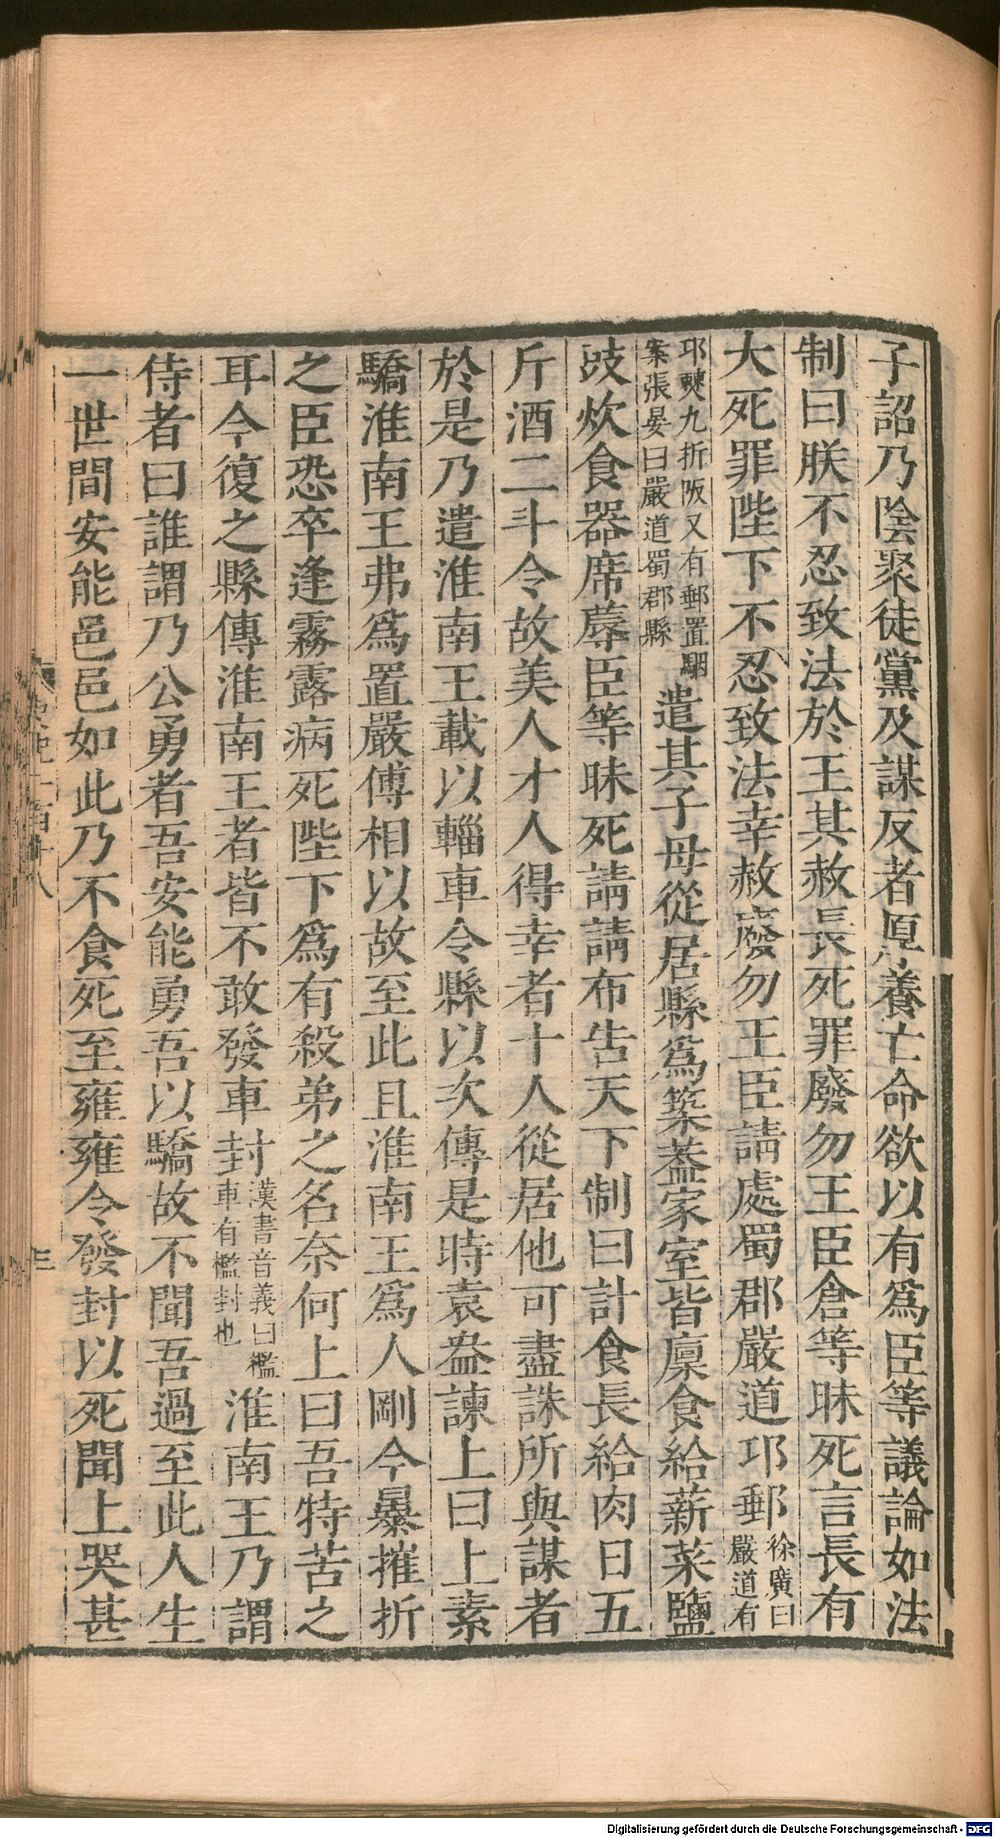 子詔乃陰聚徒黨及謀反者厚養亡命欲以有爲臣等議論如法
制曰朕不忍致法於王其赦長死罪廢勿王臣倉等昧死言長有
大死罪陛下不忍致法幸赦廢勿王臣請處蜀郡嚴道卭郵徐廣曰嚴道有
卭僰九折阪又有郵置駰案張晏曰嚴道蜀郡縣遣其子母從居縣爲築葢家室皆廩食給薪菜鹽
豉炊食器席蓐臣等昧死請請布吿天下制曰計食長給肉日五
斤酒二斗令故美人才人得幸者十人從居他可盡誅所與謀者
於是乃遣淮南王載以輜車令縣以次傳是時袁盎諫上曰上素
驕淮南王弗爲置嚴傅相以故至此且淮南王爲人剛今暴摧折
之臣恐卒逢霧露病死陛下爲有殺弟之名奈何上曰吾特苦之
耳今復之縣傳淮南王者皆不敢發車封漢書音義曰檻車有檻封也淮南王乃謂
侍者曰誰謂乃公勇者吾安能勇吾以驕故不聞吾過至此人生
一世間安能邑邑如此乃不食死至雍雍令發封以死聞上哭甚
三
Digitalisierung gefördert durch die Deutsche Forschungsgemeinschaft - DFG